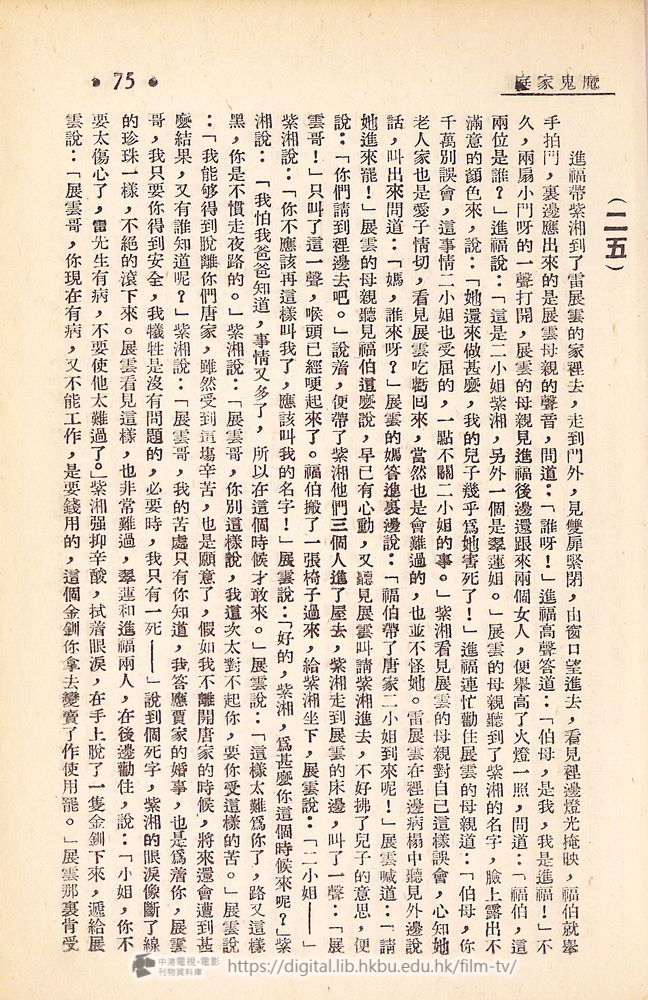 庭家鬼魔
• 75 •
（二五）
進福帶紫湘到了雷展雲的家裡去，走到門外，見雙扉緊閉，由窗口望進去，看見裡邊燈光掩映，福伯就舉
手拍門，裏邊應出來的是展雲母親的聲音，問道：「誰呀！」進福高聲答道：「伯母，是我，我是進福！」不
久，兩扇小門呀的一聲打開，展雲的母親見進福後邊還跟來兩個女人，便舉高了火燈一照，問道：「福伯，這
兩位是誰？」進福說：「這是二小姐紫湘，另外一個是翠蓮姐。」展雲的母親聽到了紫湘的名字，臉上露出不
滿意的顏色來，說：「她還來做甚麼，我的兒子幾乎爲她害死了！」進福連忙勸住展雲的母親道：「伯母，你
千萬別誤會，這事情二小姐也受屈的，一點不關二小姐的事。」紫湘看見展雲的母親對自己這樣誤會，心知她
老人家也是愛子情切，看見展雲吃虧回來，當然也是會難過的，也並不怪她。雷展雲在裡邊病榻中聽見外邊說
話，叫出來問道：「媽，誰來呀？」展雲的媽答進裏邊說：「福伯帶了唐家二小姐到來呢！」展雲喊道：「請
她進來罷！」展雲的母親聽見福伯這麼說，早已有心動，又聽見展雲叫請紫湘進去，不好拂了兒子的意思，便
說：「你們請到裡邊去吧。」說着，便帶了紫湘他們三個人進了屋去，紫湘走到展雲的床邊，叫了一聲：「展
雲哥！」只叫了這一聲，喉頭已經哽起來了。福伯搬了一張椅子過來，給紫湘坐下，展雲說：「二小姐——」
紫湘說：「你不應該再這樣叫我了，應該叫我的名字！」展雲說：「好的，紫湘，爲甚麼你這個時候來呢？」紫
湘說：「我怕我爸爸知道，事情又多了，所以在這個時候才敢來。」展雲說：「這樣太難爲你了，路又這樣
黑，你是不慣走夜路的。」紫湘說：「展雲哥，你別這樣說，我這次太對不起你，要你受這樣的苦。」展雲說
：「我能够得到脫離你們唐家，雖然受到這塲辛苦，也是願意了，假如我不離開唐家的時候，將來還會遭到甚
麼結果，又有誰知道呢？」紫湘說：「展雲哥，我的苦處只有你知道，我答應賈家的婚事，也是爲着你，展雲
哥，我只要你得到安全，我犧牲是沒有問題的，必要時，我只有一死——」說到個死字，紫湘的眼淚像斷了線
的珍珠一樣，不絕的滾下來。展雲看見這樣，也非常難過，翠蓮和進福兩人，在後邊勸住，說：「小姐，你不
要太傷心了，雷先生有病，不要使他太難過了。」紫湘强抑辛酸，拭着眼淚，在手上脫了一隻金釧下來，遞給展
雲說：「展雲哥，你現在有病，又不能工作，是要錢用的，這個金釧你拿去變賣了作使用罷。」展雲那裏肯受
中港電視·電影
刊物資料庫
https://digital.lib.hkbu.edu.hk/film-tv/